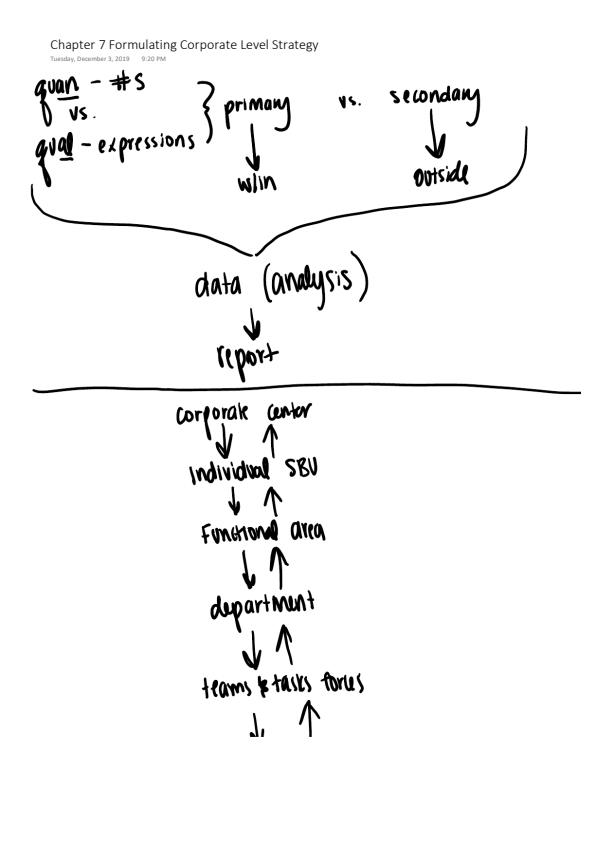 Chapter 7 Formulating Corporate Level Strategy
Tuesday, December 3, 2019 9:20 PM
quan - #s
vs.
qual - expressions
primary vs. secondary
w/in outside
data (analysis)
report
corporate center
Individual SBU
Functional area
department
teams & tasks forces